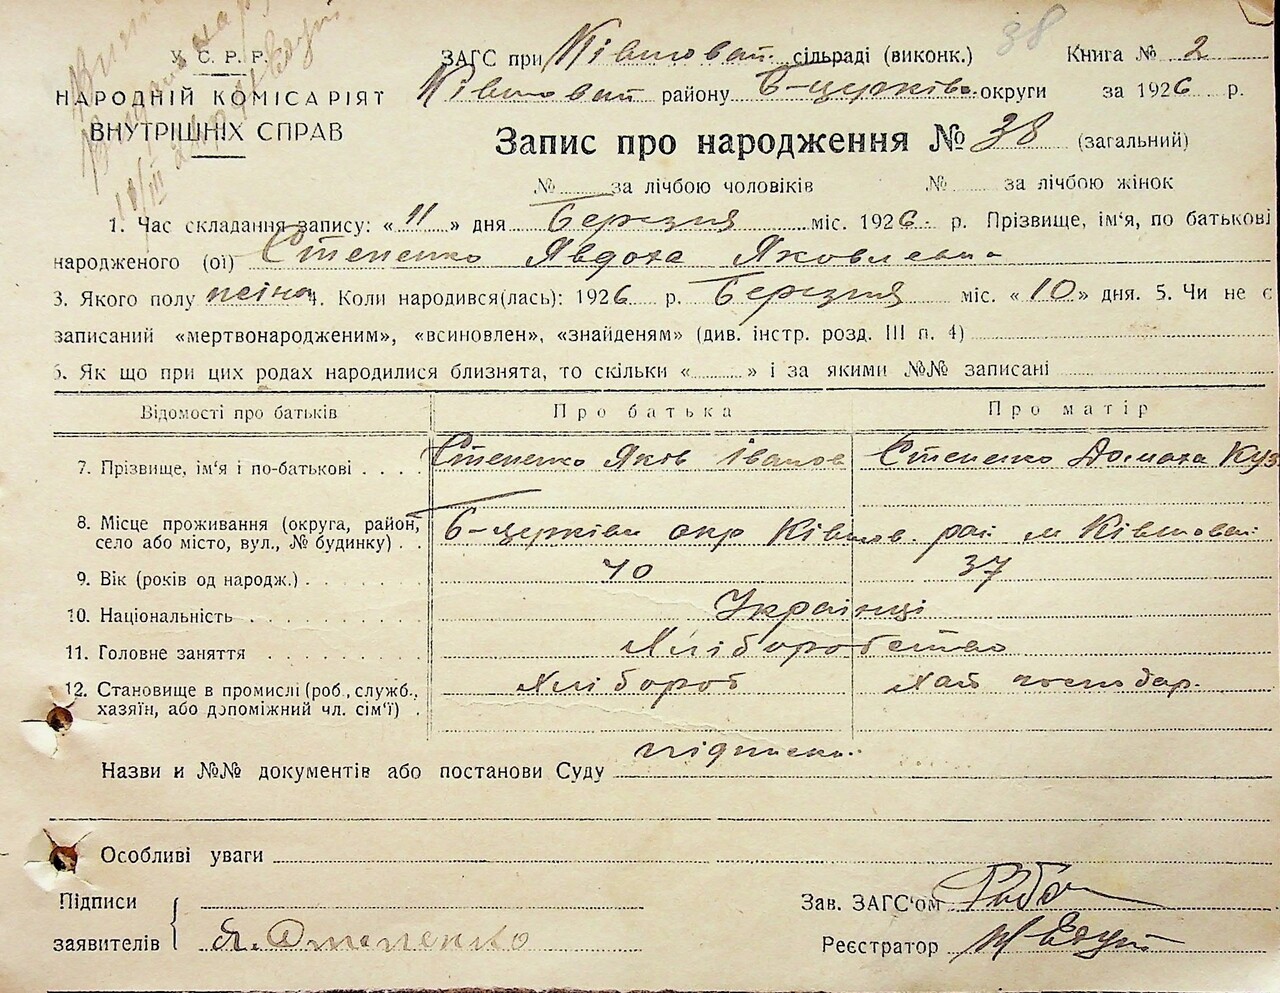 У. С. Р. Р.
НАРОДНІЙ КОМІСАРІЯТ
ВНУТРІШНІХ СПРАВ
38
ЗАГС при Ківшоват. сільраді (виконк.) Книга № 2
Ківшоват району Б-церківс. округи за 1926 р.
Запис про народження № 38 (загальний)
№ за лічбою чоловіків № за лічбою жінок
1. Час складання запису: « 11 » дня Березня міс. 1926 р. Прізвище, ім'я, по батькові
народженого (ої) Степенко Явдоха Яковлевна
3. Якого полу жіноч 4. Коли народився(лась): 1926 р. Березня міс. « 10 » дня. 5. Чи не є
записаний «мертвонародженим», «всиновлен», «знайденям» (див. інстр. розд. III п. 4)
6. Як що при цих родах народилися близнята, то скільки « » і за якими №№ записані
Відомості про батьків Про батька Про матір
7. Прізвище, ім'я і по-батькові . . . Степенко Яків Іванов Степенко Домаха Куз
8. Місце проживання (округа, район,
село або місто, вул., № будинку) . . Б-церківс окр Ківшов. рай м Ківшоват
9. Вік (років од народж.) . . . . . . 40 37
10. Національність . . . . . . . . . Українці
11. Головне заняття . . . . . . . . Хліборобство
12. Становище в промислі (роб., служб.,
хазяїн, або допоміжний чл. сім'ї) . Хлібороб хат господар.
Назви и №№ документів або постанови Суду підписка
Особливі уваги
Підписи
заявителів Я. Степенко
Зав. ЗАГС'ом
Реєстратор